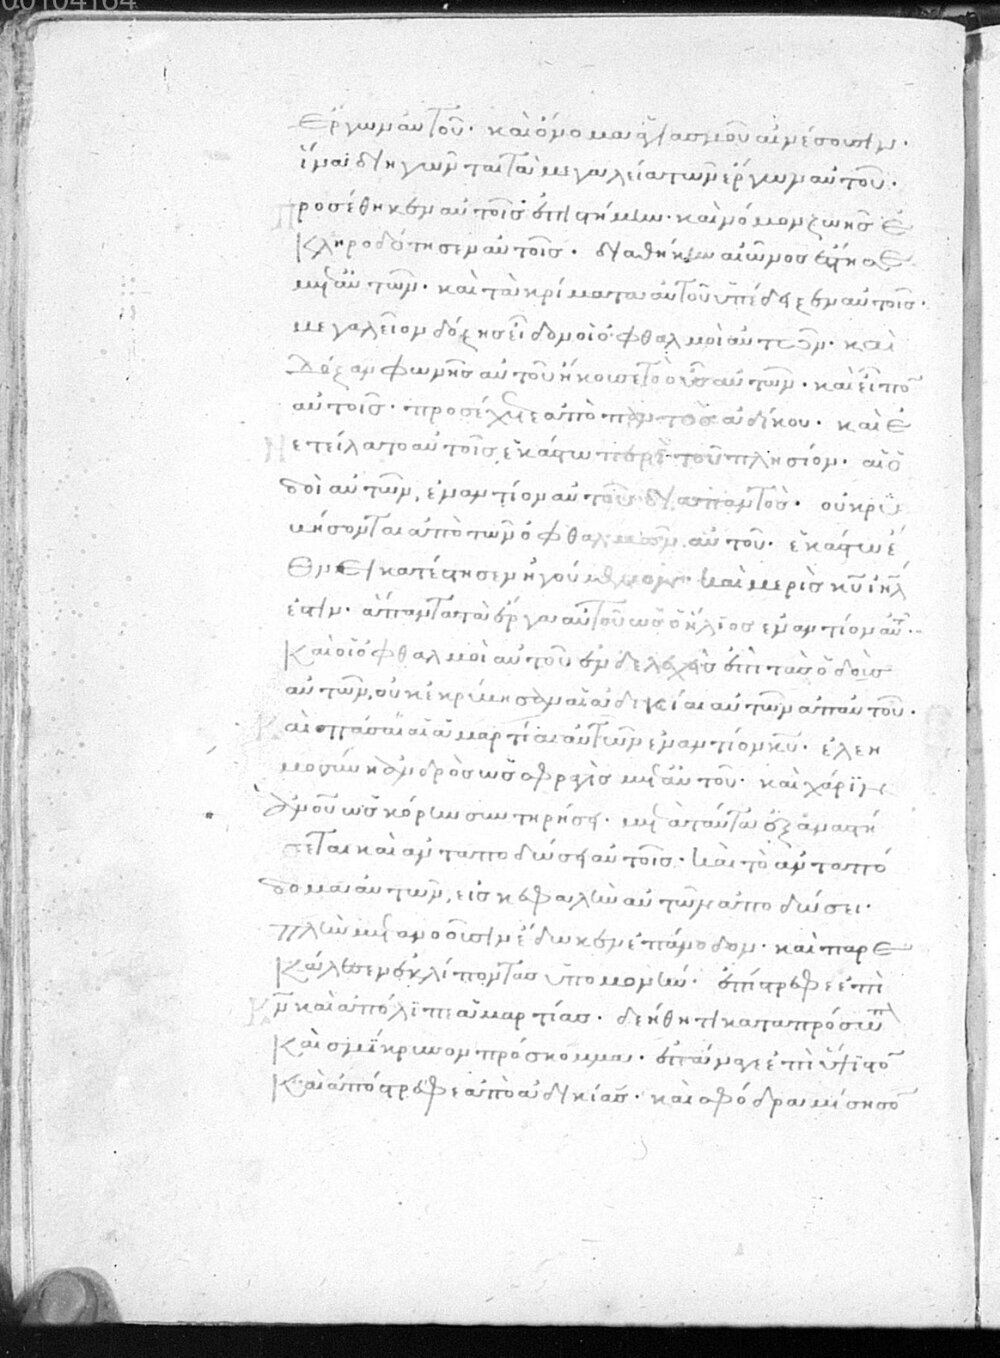 ἔργων αὐτοῦ· καὶ ὄνομα ἁγιασμοῦ αἰνέσουσιν·
ἵνα διηγῶνται τὰ μεγαλεῖα τῶν ἔργων αὐτοῦ·
Προσέθηκεν αὐτοῖς ἐπιστήμην· καὶ νόμον ζωῆς ἐ
κληροδότησεν αὐτοῖς· διαθήκην αἰῶνος ἔστησε
μετ' αὐτῶν· καὶ τὰ κρίματα αὐτοῦ ὑπέδειξεν αὐτοῖς·
μεγαλεῖον δόξης εἶδον οἱ ὀφθαλμοὶ αὐτῶν· καὶ
δόξαν φωνῆς αὐτοῦ ἤκουσε τὸ οὖς αὐτῶν· καὶ εἶπεν
αὐτοῖς· προσέχετε ἀπὸ παντὸς ἀδίκου· καὶ ἐ
νετείλατο αὐτοῖς ἑκάστῳ περὶ τοῦ πλησίον· αἱ ὁ
δοὶ αὐτῶν, ἐναντίον αὐτοῦ διαπαντός· οὐ κρυ
βήσονται ἀπὸ τῶν ὀφθαλμῶν αὐτοῦ· ἑκάστῳ ἔ
θνει κατέστησεν ἡγούμενον· καὶ μερὶς κυ ιηλ
ἐστιν· ἅπαντα τὰ ἔργα αὐτοῦ ὡς ὁ ἥλιος ἐναντίον αὐτοῦ·
καὶ οἱ ὀφθαλμοὶ αὐτοῦ ἐνδελεχεῖς ἐπὶ τὰς ὁδοὺς
αὐτῶν, οὐκ ἐκρύβησαν αἱ ἀδικίαι αὐτῶν ἀπ' αὐτοῦ·
Καὶ πᾶσαι αἱ ἁμαρτίαι αὐτῶν ἐναντίον κυ· ἐλεη
μοσύνη ἀνδρὸς ὡς σφραγὶς μετ' αὐτοῦ· καὶ χάριν
ἀνοῦ ὡς κόρην συντηρήσει· μετὰ ταῦτα ἐξαναστή
σεται καὶ ἀνταποδώσει αὐτοῖς· καὶ τὸ ἀνταπό
δομα αὐτῶν, εἰς κεφαλὴν αὐτῶν ἀποδώσει·
πλὴν μετανοοῦσιν ἔδωκεν ἐπάνοδον· καὶ παρε
κάλεσεν ἐκλίποντας ὑπομονήν· ἐπίστρεφε ἐπὶ
κν καὶ ἀπόλιπε ἁμαρτίας· δεήθητι κατὰ πρόσωπ
καὶ σμίκρυνον πρόσκομμα· ἐπάναγε ἐπὶ ὕψιστον
καὶ ἀπόστρεφε ἀπὸ ἀδικίας· καὶ σφόδρα μίσησον